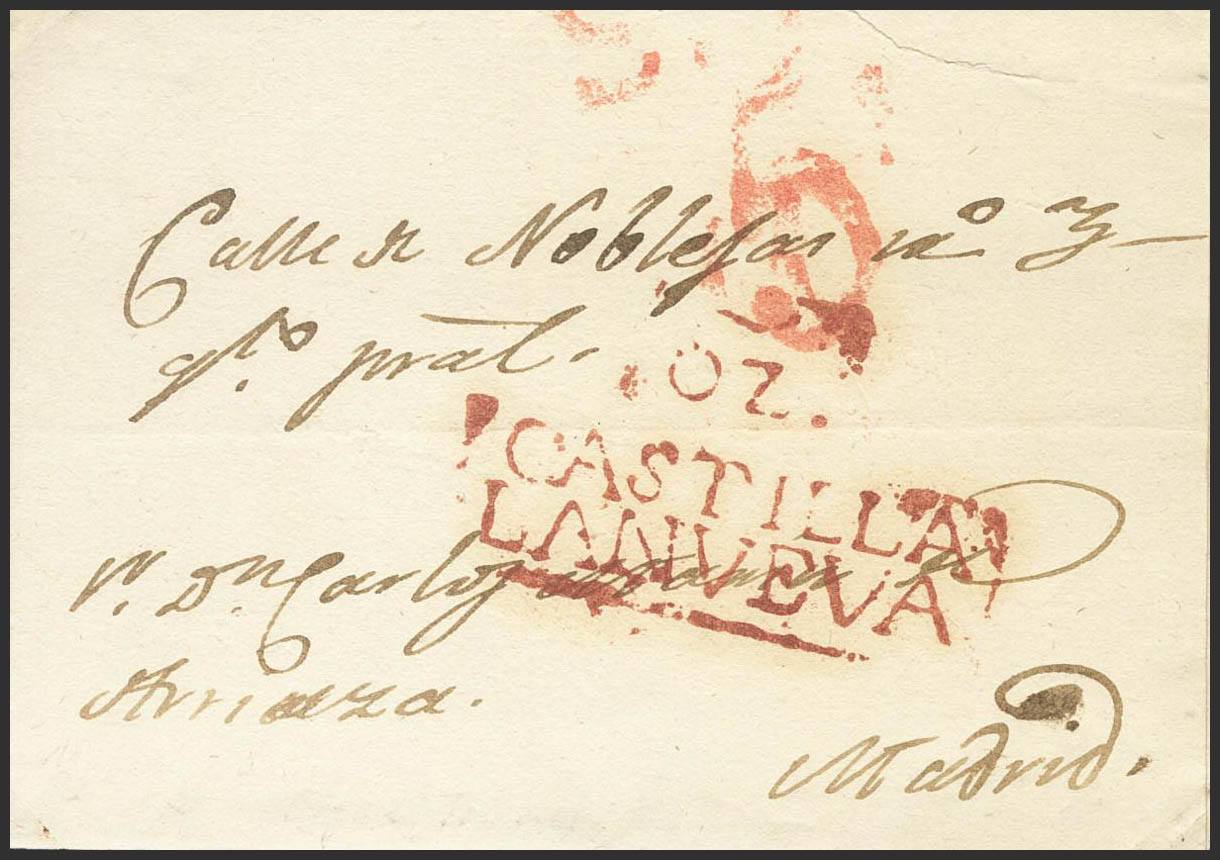 Calle de Noblejas nº 7
qto. pral.
OZ.
CASTILLA
LANVEVA
Sr. Dn. Carlos
Arriaza.
Madrid.